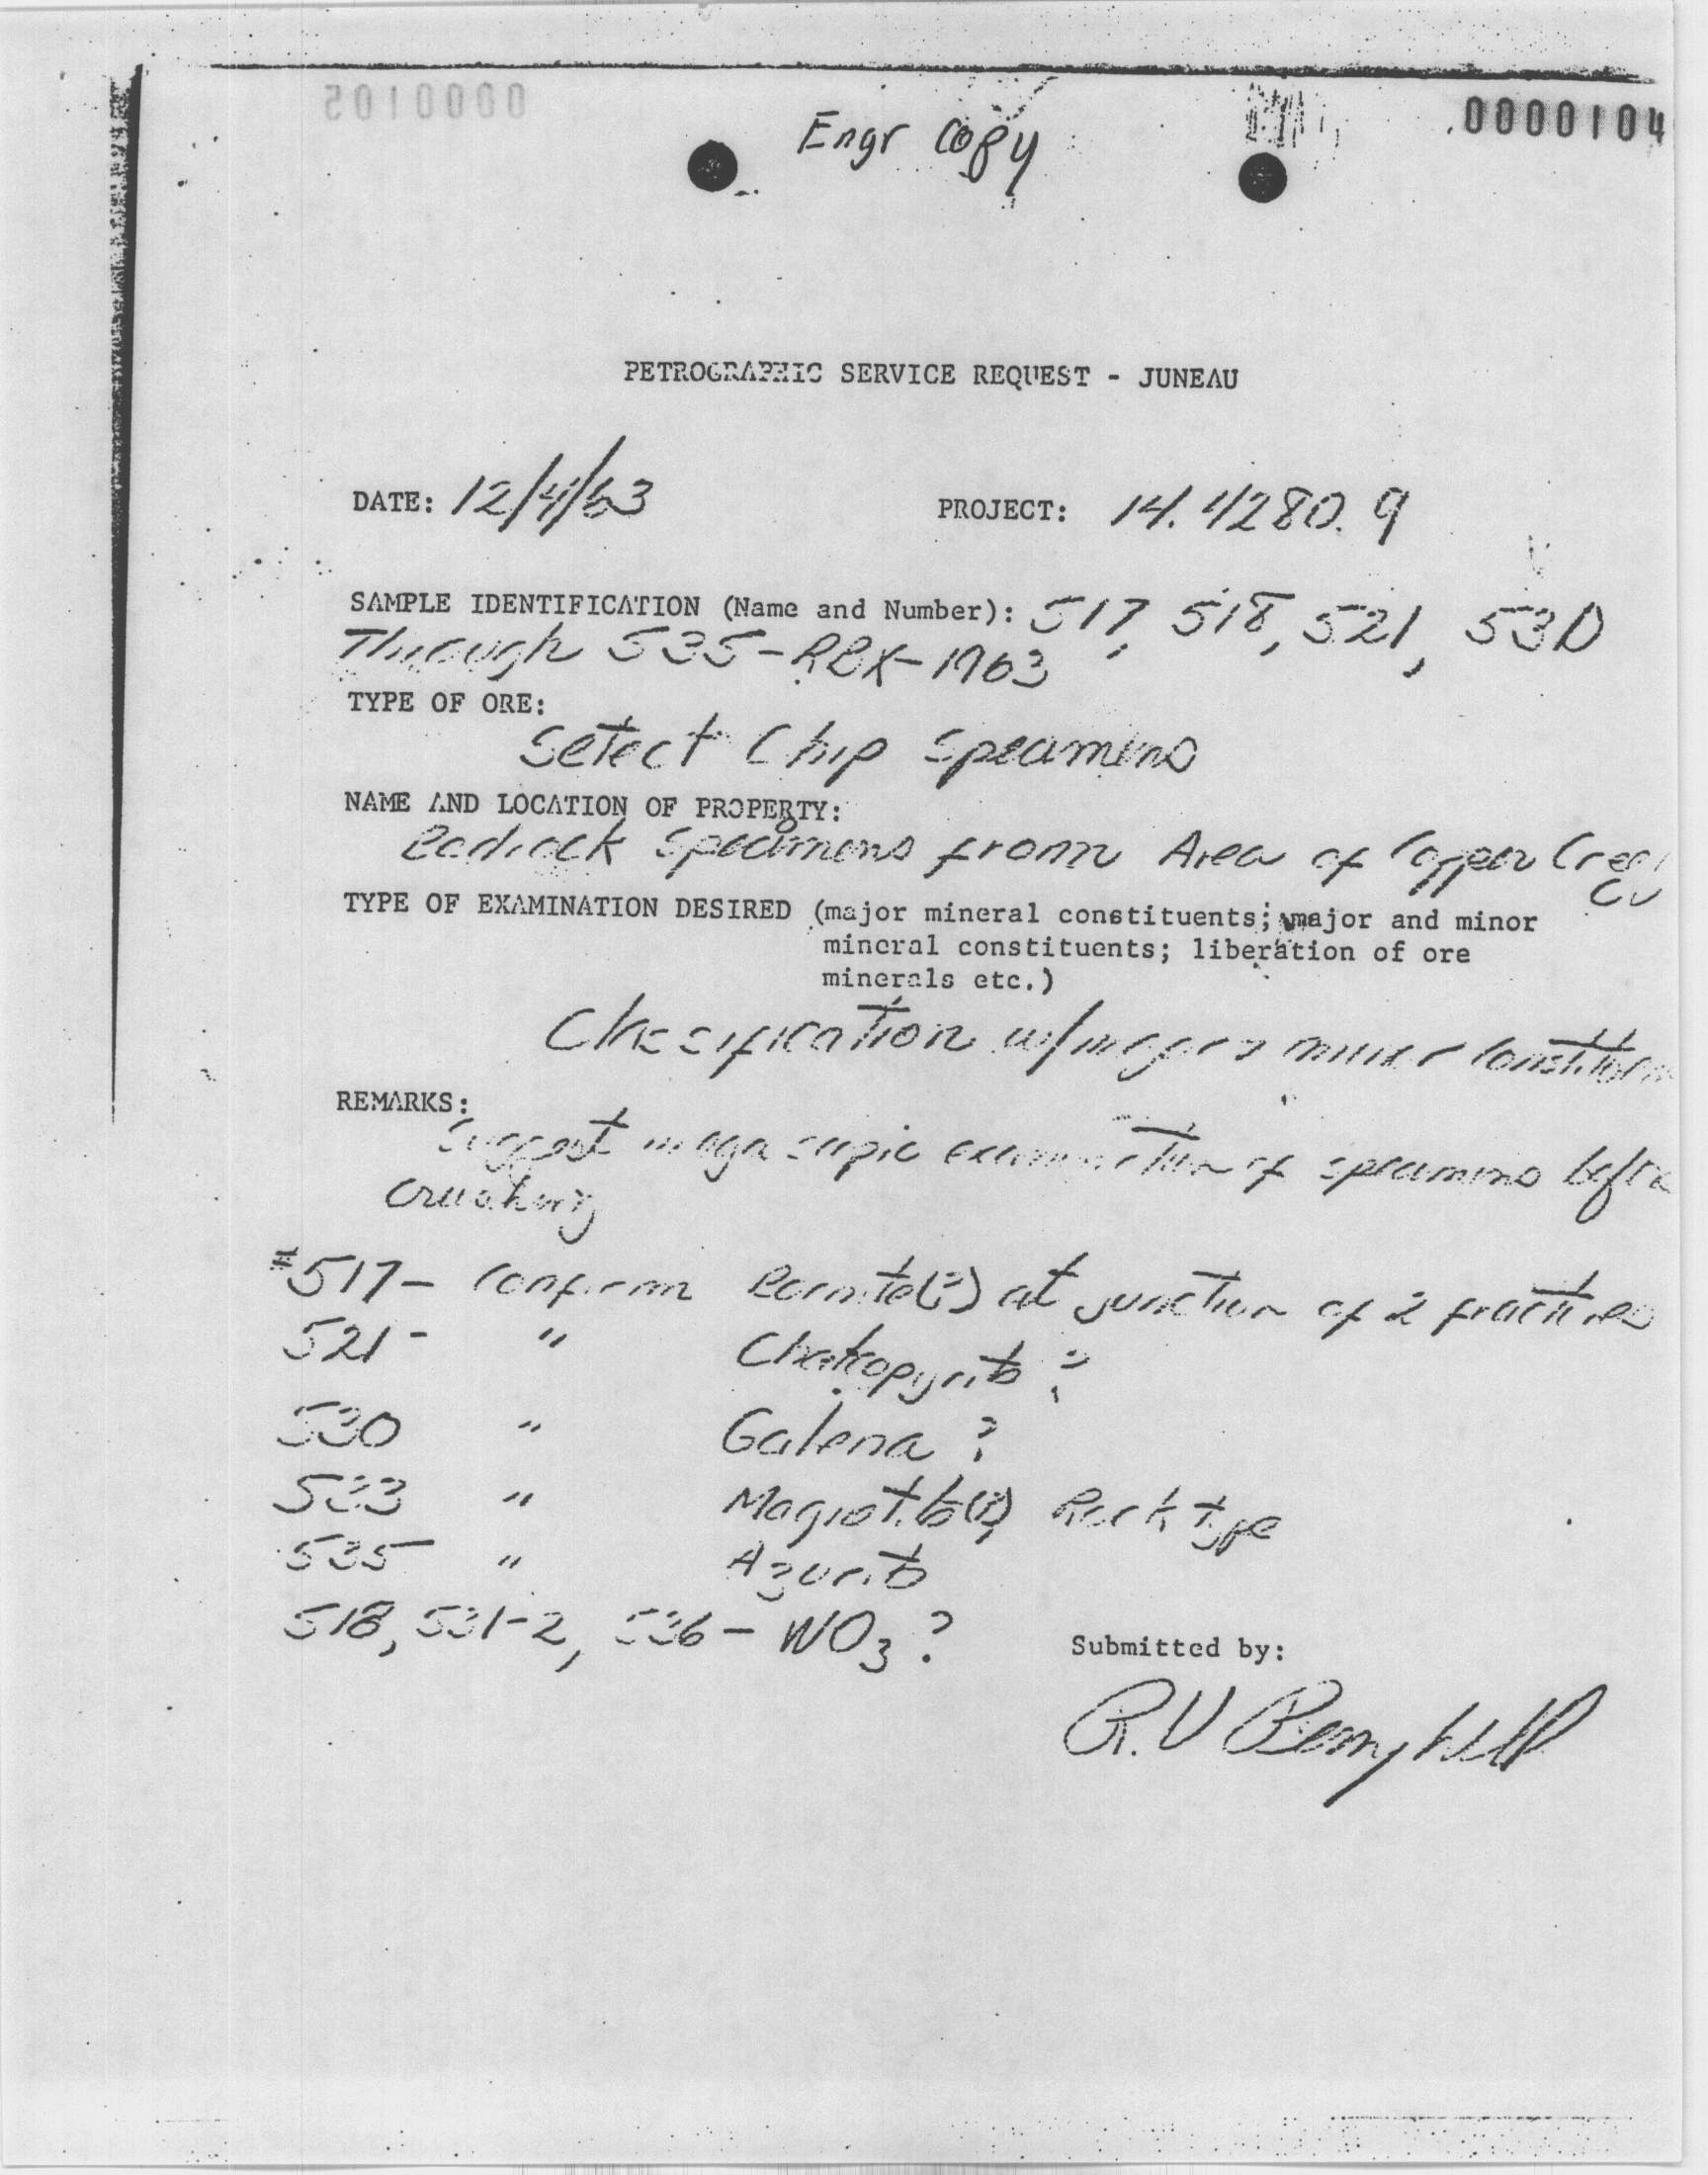 0000105
Engr Copy
0000104
PETROGRAPHIC SERVICE REQUEST - JUNEAU
DATE: 12/4/63 PROJECT: 14.4280.9
SAMPLE IDENTIFICATION (Name and Number): 517, 518, 521, 530
Through 535-RBX-1963
TYPE OF ORE:
Select Chip Specimens
NAME AND LOCATION OF PROPERTY:
Bedrock Specimens from Area of Copper Cree
Cu
TYPE OF EXAMINATION DESIRED (major mineral constituents; major and minor
mineral constituents; liberation of ore
minerals etc.)
Classification w/major minor Constituen
REMARKS:
Suggest megascopic examination of specimens before
Crushing
#517- Confirm Bornite(?) at junction of 2 fractures
521- " Chalcopyrite ?
530 " Galena ?
533 " Magnetite(?) Rock type
535 " Azurite
518, 531-2, 536 - WO3 ?
Submitted by:
R.V Berryhill